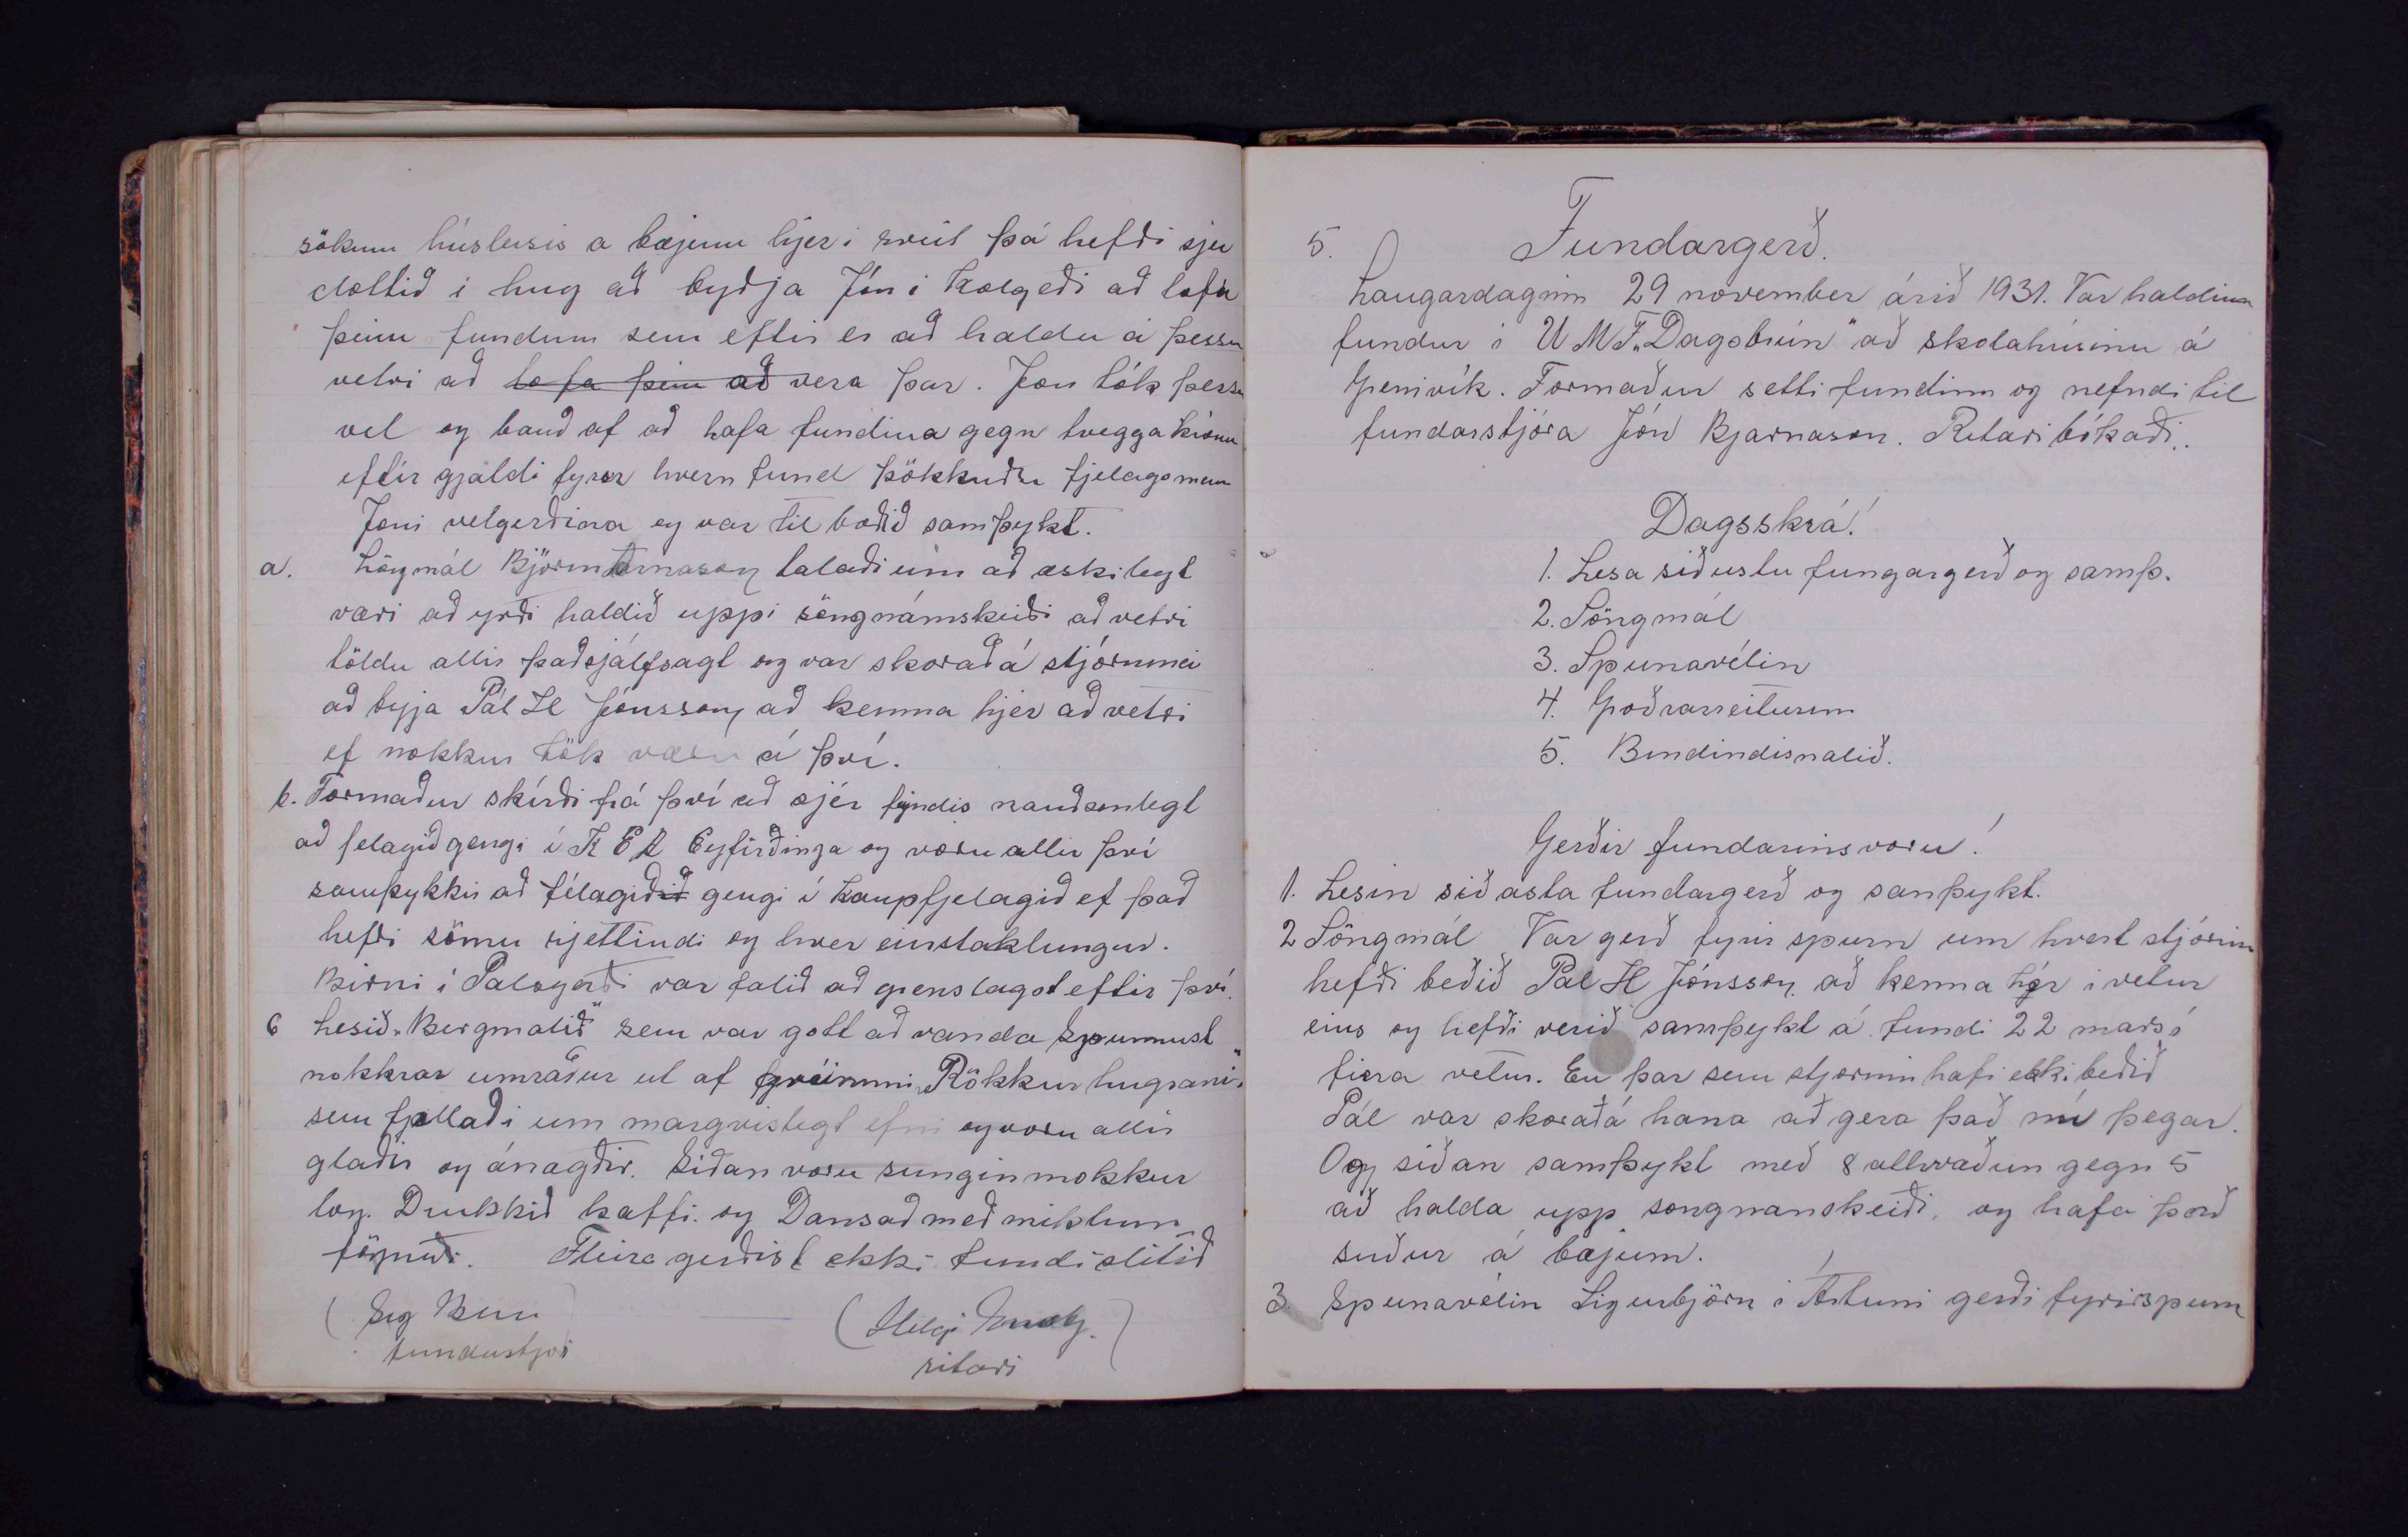 sökum húsleisis a bæjunu hjer i sveit þá hefði sjer
dottið i hug að byðja Jón i Kolgeði að lofa
þeim fundum sem eftir er að halda á þessu
vetri að lofa þeim að vera þar. Jon tók þessu
vel og bauð af að hafa fundina gegn tveggja krónu
eftir gjaldi fyrer hvern fund þökkuðu fjelagsmenn
Joni velgerðina og var til boðið samþykt.
a. Löngmál Björn Árnason talaði um að æskilegt
væri að yrði haldið uppi söngnámskeiði að vetri
töldu allir það sjálfsagt og var skorað á stjórnina
að byja Pál H Jónsson að kenna hjer að vetri
ef nokkur tök væru á því.
b. Formaður skírði frá því að sjer fyndis nauðsonlegt
að felagið gengi í K E A Eyfirðinga og voru allir því
samþykkir að félagiðið gengi í kaupfjelagið ef það
hefði sömu rjettindi og hver einstaklungur.
Birni i Palsgerði var falið að grenslagst eftir því.
6 Lesið „Bergmalið" sem var gott að vanda Spunnust
nokkrar umræður ut af greinnni „Rökkur hugsani"
sem fjallaði um margvislegt efni og voru allir
glaðir og ánægðir. Siðan voru sungin nokkur
log. Drukkið kaffi. og Dansað með miklum
fögnuði. Fleira gerðist ekki fundi slitið
(Sig Benn) (Helgi Snæbj.)
fundustjori ritari
5. Fundargerð.
Laugardaginn 29 november árið 1931. Var haldinn
fundur i U M F „Dagsbrún" að skolahúsinu á
Grenivík. Formaður setti fundinn og nefndi til
fundarstjóra Jón Bjarnason. Ritari bókaði.
Dagsskrá!
1. Lesa siðustu fungargerð og samþ.
2. Söngmál
3. Spunavélin
4. Groðrarreiturinn
5. Bindindismalið.
Gerðir fundarins voru!
1. Lesin sið asta fundargerð og samþykt.
2 Söngmál Var gerð fyrir spurn um hvert stjórnin
hefði beðið Pal H Jónsson að kenna hér i vetur
eins og hefði verið samþykt á fundi 22 mars i
fiera vetur. En þar sem stjornin hafi ekki beðið
Pál var skorað á hana að gera það nú þegar.
Og siðan samþykt með 8 atkvæðun gegn 5
að halda upp songnanskeiði, og hafa það
suður á bæjum.
3. Spunavélin Sigurbjörn i Ártuni gerði fyrirspurn